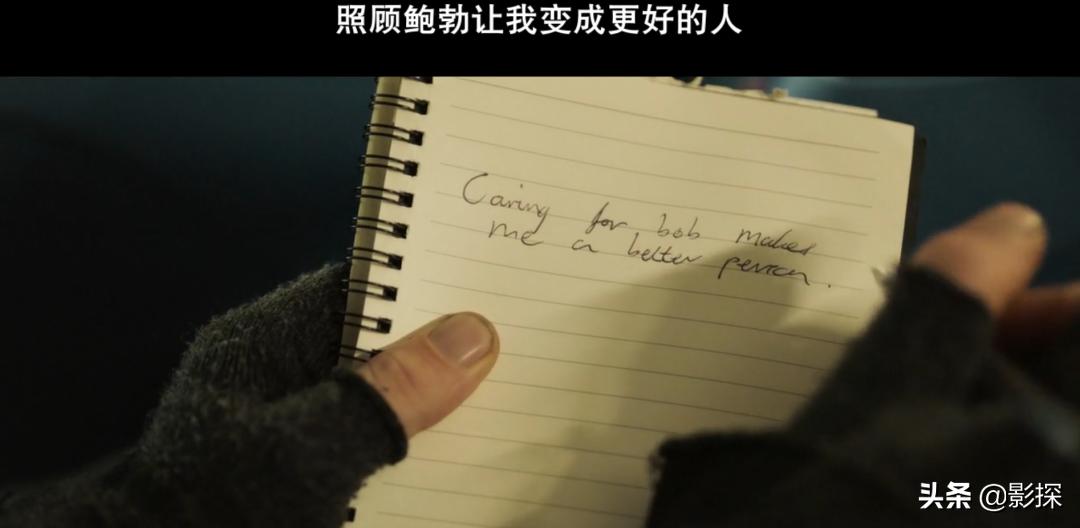 照顾鲍勃让我变成更好的人
Caring for bob makes
me a better person.
头条 @影探